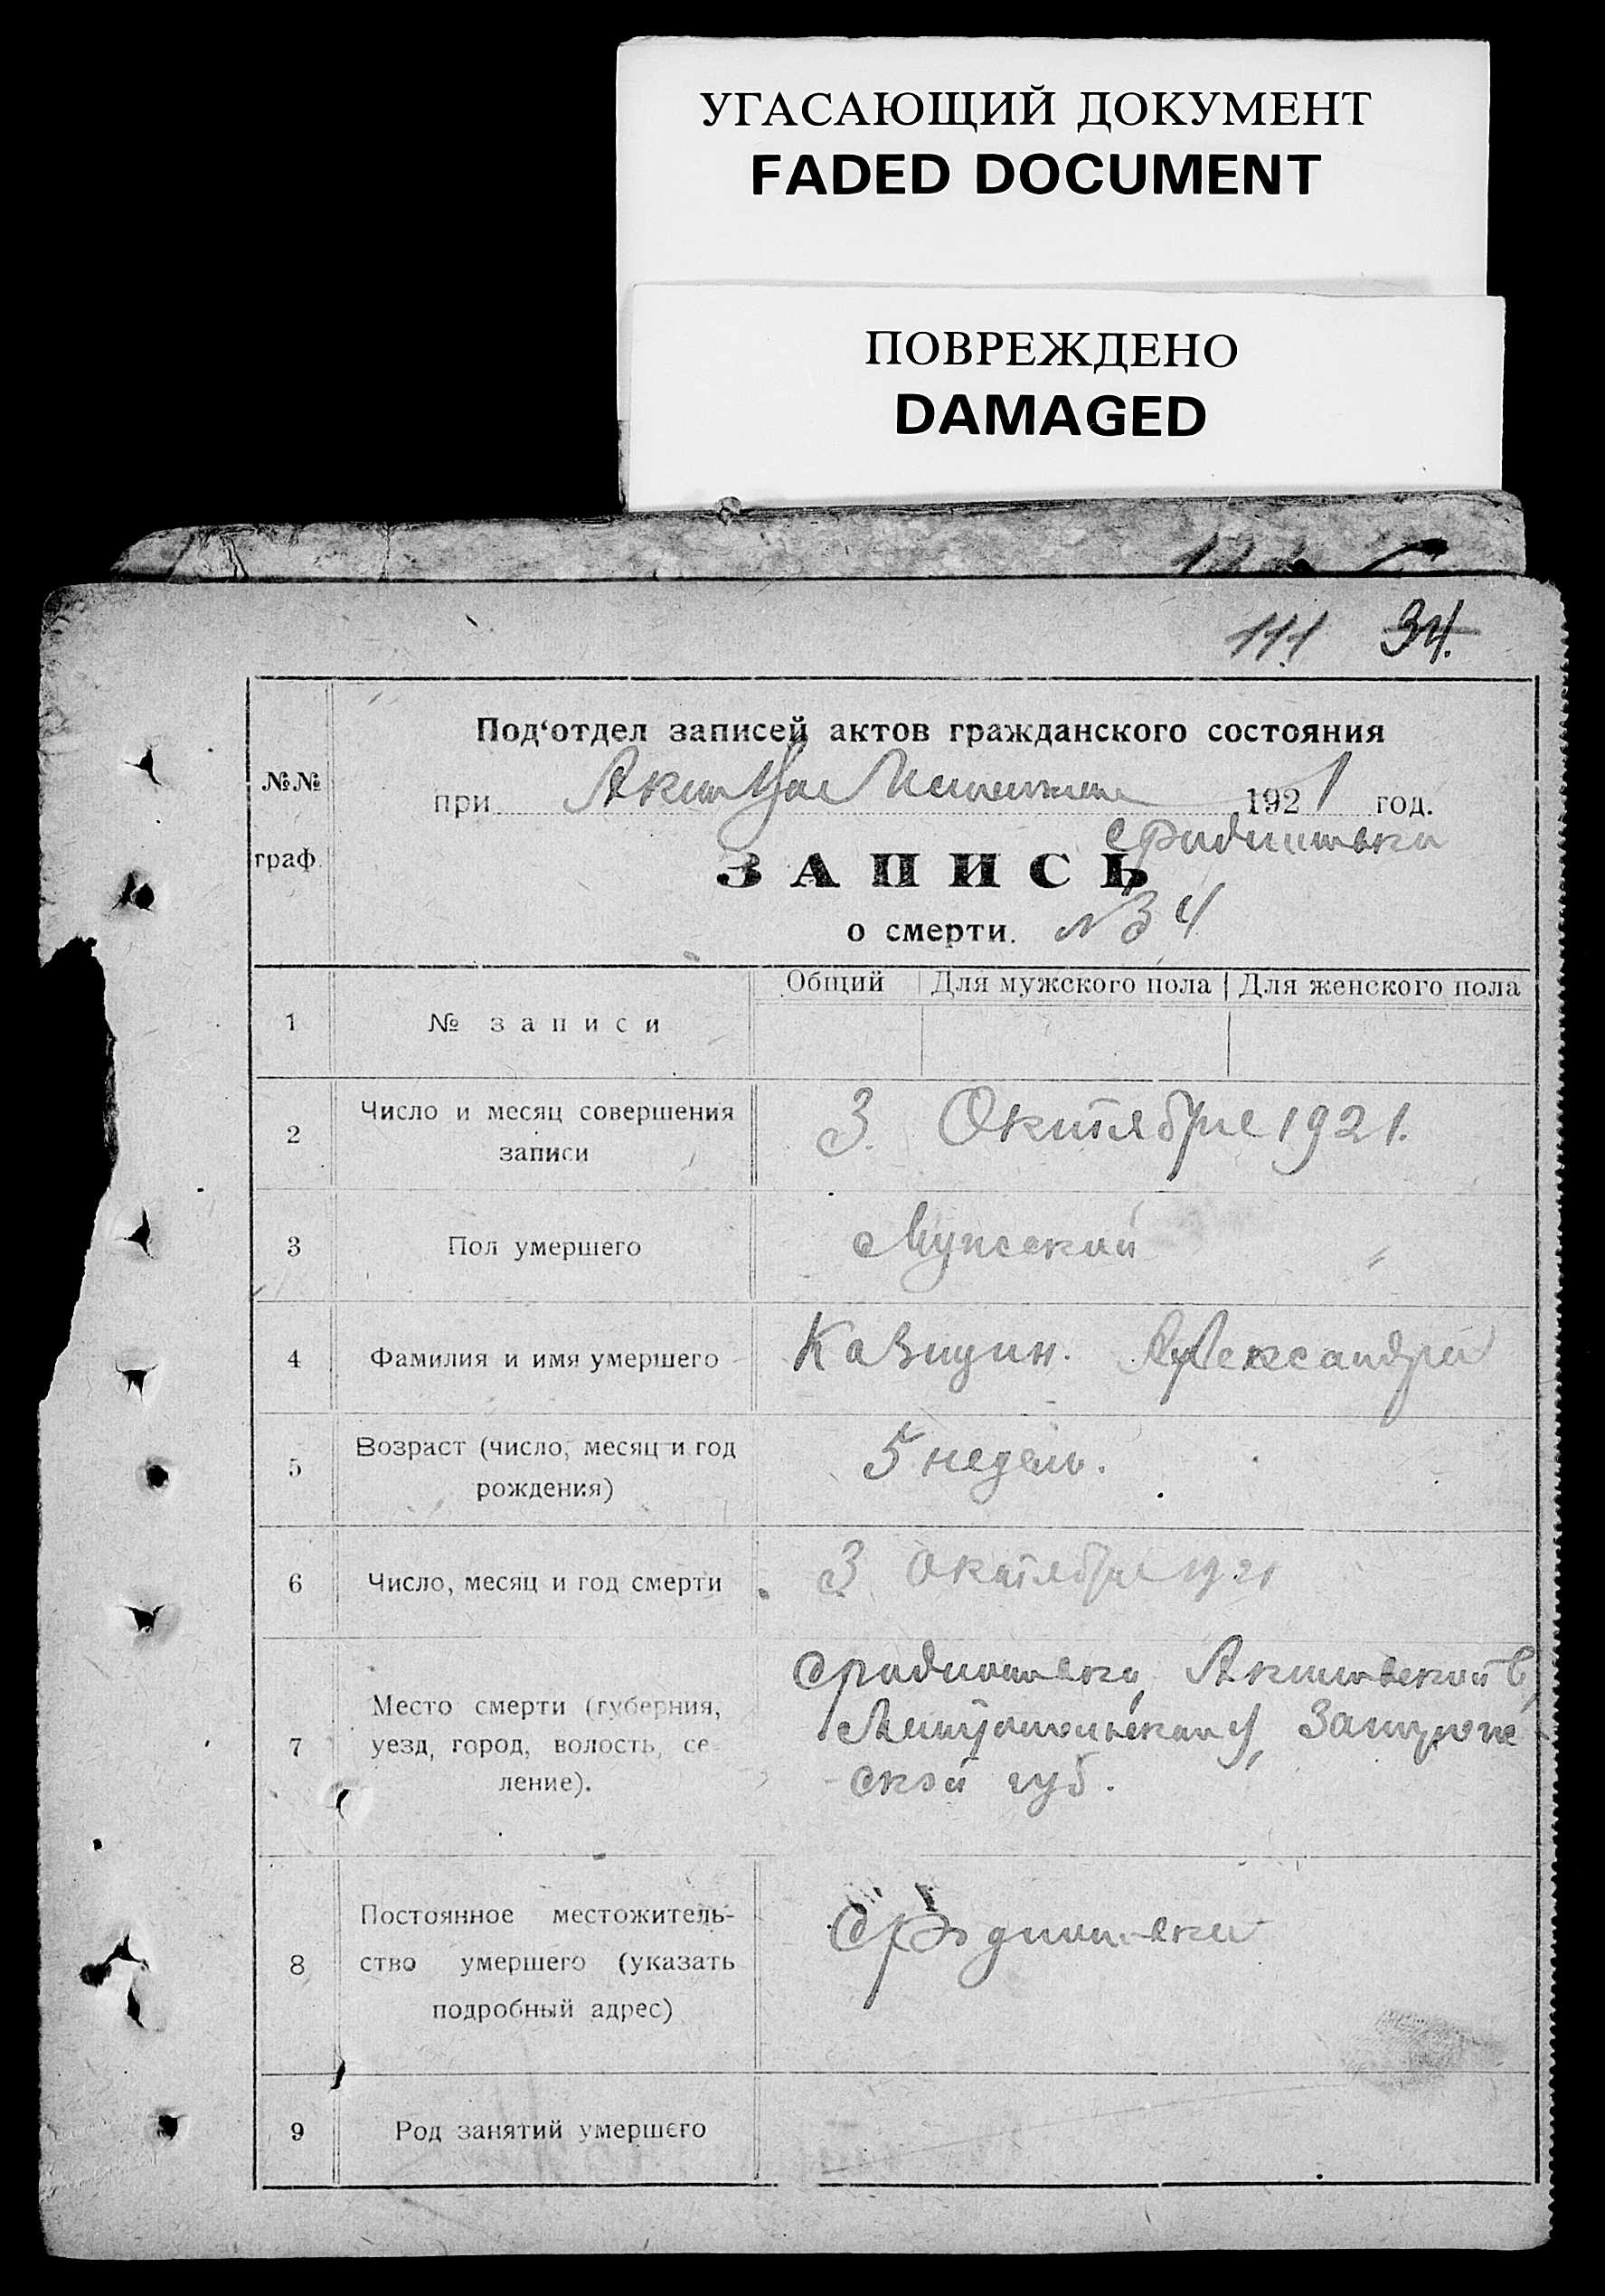 УГАСАЮЩИЙ ДОКУМЕНТ
FADED DOCUMENT
ПОВРЕЖДЕНО
DAMAGED
111 34.
Под‘отдел записей актов гражданского состояния
№№
при 1921 год.
граф.
ЗАПИСЬ
о смерти. №34
Общий Для мужского пола Для женского пола
1 № записи
2 Число и месяц совершения
записи
3 Октября 1921.
3 Пол умершего Мужской
4 Фамилия и имя умершего Казицин. Александр
5 Возраст (число, месяц и год
рождения)
5 недель.
6 Число, месяц и год смерти 3 Октября 1921
7 Место смерти (губерния,
уезд, город, волость, се-
ление).
Акимовской в,
Мелитопольскаи у, Запорож
-ской губ.
8 Постоянное местожитель-
ство умершего (указать
подробный адрес)
9 Род занятий умершего